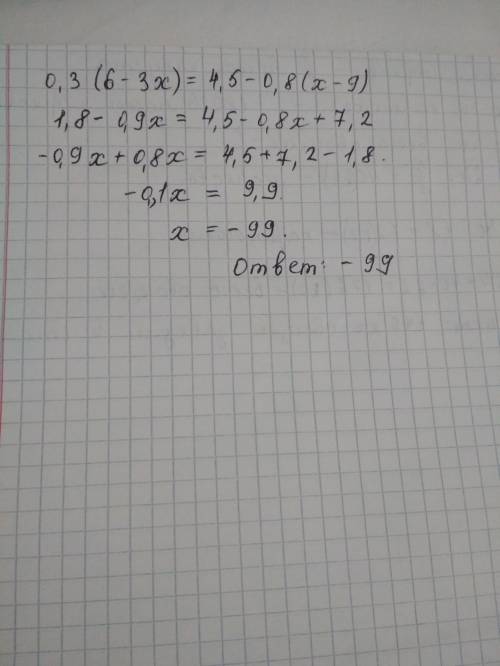 0,3 (6 - 3x) = 4,5 - 0,8 (x - 9)
1,8 - 0,9x = 4,5 - 0,8x + 7,2
-0,9x + 0,8x = 4,5 + 7,2 - 1,8.
-0,1x = 9,9.
x = -99.
Ответ: - 99